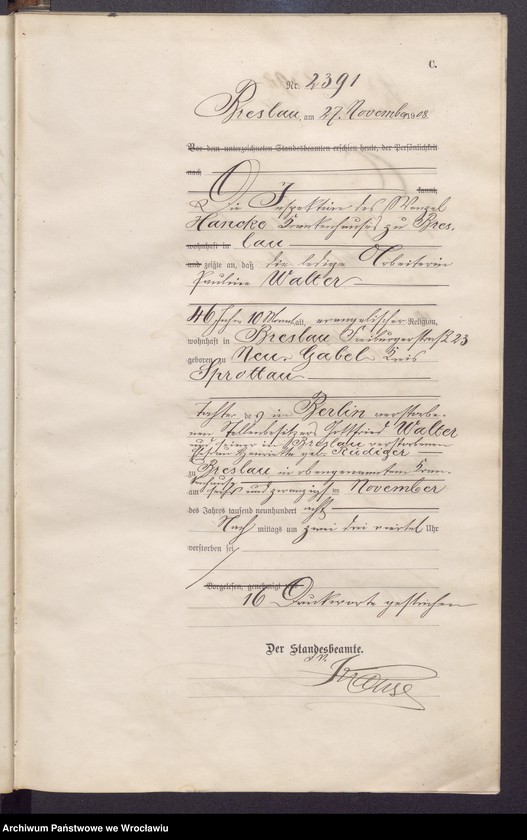 C.
Nr. 2391
Breslau, am 27. November 1908.
Vor dem unterzeichneten Standesbeamten erschien heute, der Persönlichkeit
nach
kannt,
Die Inspektion des Wenzel
Hancke Krankenhauses zu Bres-
wohnhaft in lau
und zeigte an, daß die ledige Arbeiterin
Pauline Walter
46 Jahre 10 Monate alt, evangelischer Religion,
wohnhaft in Breslau Freiburgerstraße 23
geboren zu Neu-Gabel Kreis
Sprottau
Tochter des in Berlin verstorbe-
nen Stellenbesitzers Gottfried Walter
und seiner in Breslau verstorbenen
Ehefrau Henriette geb. Rüdiger
zu Breslau in obengenanntem Kran-
kenhause
am sechs und zwanzigsten November
des Jahres tausend neunhundert acht
Nach mittags um zwei drei viertel Uhr
verstorben sei
Vorgelesen, genehmigt und
16 Druckworte gestrichen
Der Standesbeamte.
J.V.
Krause
Archiwum Państwowe we Wrocławiu